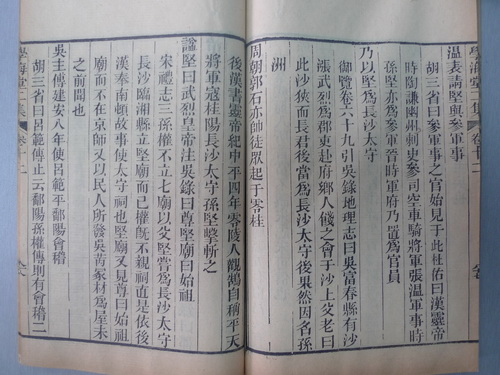 學海堂二集 卷十二
溫表請堅與參軍事
胡三省曰參軍事之官始見于此杜佑曰漢靈帝
時陶謙幽州刺史參司空車騎將軍張溫軍事時
孫堅亦爲參軍晉時軍府乃置爲官員
乃以堅爲長沙太守
御覽卷六十九引吳錄地理志曰吳富春縣有沙
漲武烈爲郡吏赴府鄉人餞之會于沙上父老曰
此沙狹而長君後當爲長沙太守後果然因名孫
洲
周朝郭石亦帥徒眾起于零桂
後漢書靈帝紀中平四年零陵人觀鵠自稱平天
將軍寇桂陽長沙太守孫堅擊斬之
諡堅曰武烈皇帝注吳錄曰尊堅廟曰始祖
宋禮志三孫權不立七廟以父堅嘗爲長沙太守
長沙臨湘縣立堅廟而已權旣不親祠直是依後
漢奉南頓故事使太守祠也堅廟又見尊曰始祖
廟而不在京師又以民人所發吳芮冢材爲屋未
之前聞也
吳主傳建安八年使呂範平鄱陽會稽
胡三省曰呂範傳止云鄱陽孫權傳則有會稽二
學海堂二集 卷十二